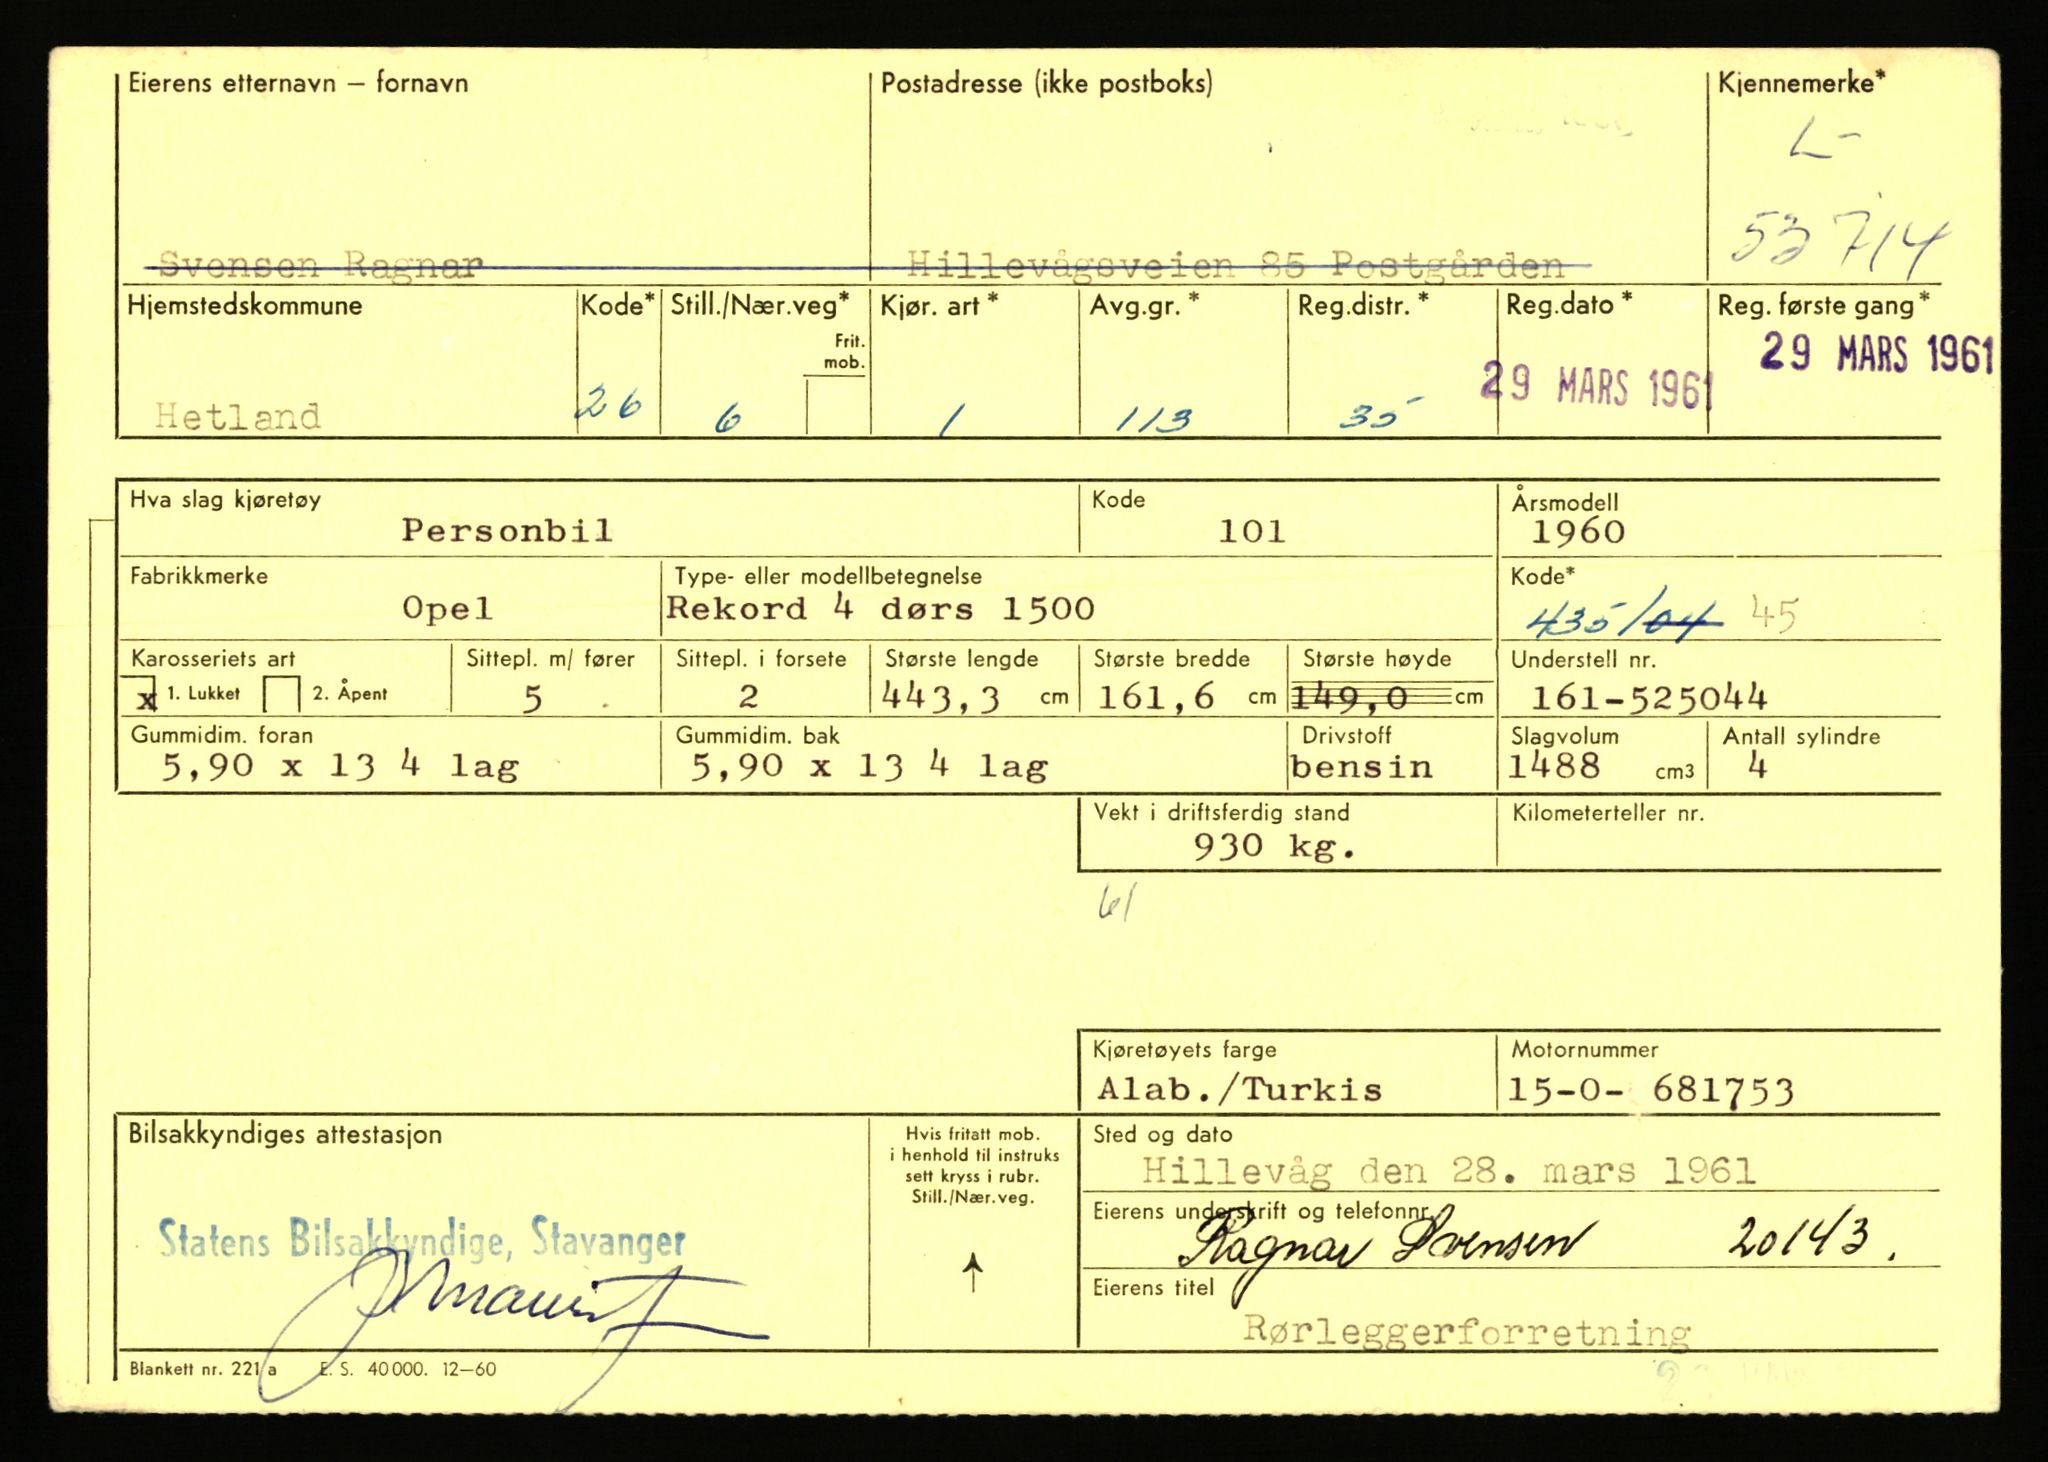 Eierens etternavn — fornavn Postadresse (ikke postboks) Kjennemerke*
L-
53714
Svensen Ragnar Hillevågsveien 85 Postgården
Hjemstedskommune Kode* Still./Nær.veg* Kjør. art* Avg.gr.* Reg.distr.* Reg.dato* Reg. første gang*
Frit.
mob.
29 MARS 1961
29 MARS 1961
Hetland 26 6 1 113 35
Hva slag kjøretøy Kode Årsmodell
Personbil 101 1960
Fabrikkmerke Type- eller modellbetegnelse Kode*
Opel Rekord 4 dørs 1500 435/04 45
Karosseriets art Sittepl. m/ fører Sittepl. i forsete Største lengde Største bredde Største høyde Understell nr.
x 1. Lukket 2. Åpent 5 2 443,3 cm 161,6 cm 149,0 cm 161-525044
Gummidim. foran Gummidim. bak Drivstoff Slagvolum Antall sylindre
5,90 x 13 4 lag 5,90 x 13 4 lag bensin 1488 cm3 4
Vekt i driftsferdig stand Kilometerteller nr.
930 kg.
61
Kjøretøyets farge Motornummer
Alab./Turkis 15-0- 681753
Bilsakkyndiges attestasjon Hvis fritatt mob. Sted og dato
i henhold til instruks
sett kryss i rubr.
Still./Nær.veg.
Hillevåg den 28. mars 1961
Eierens underskrift og telefonnr.
Statens Bilsakkyndige, Stavanger Ragnar Svensen 20143.
Eierens titel
Rørleggerforretning
Blankett nr. 221 a E. S. 40000. 12—60